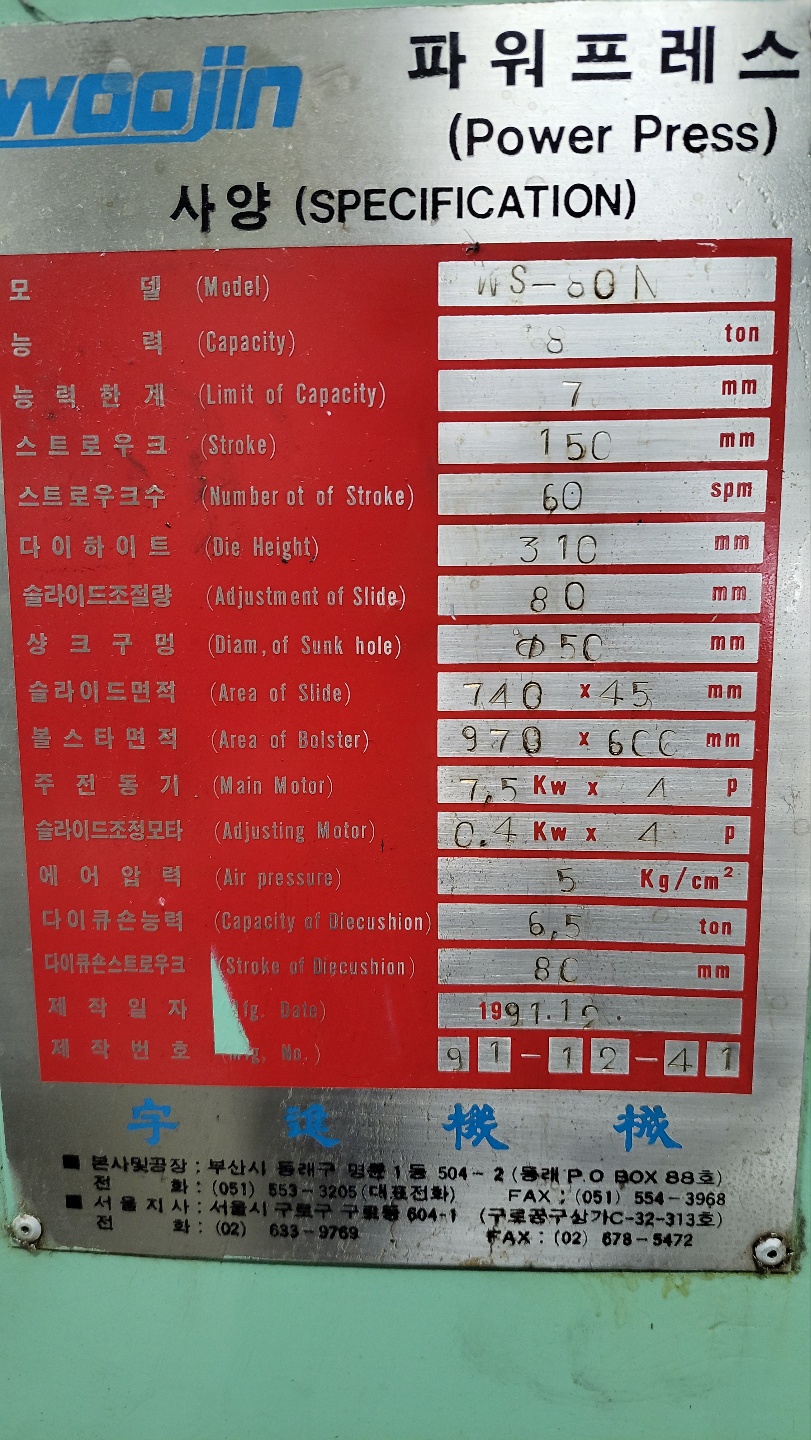 woojin
파워프레스
(Power Press)
사양 (SPECIFICATION)
모 델 (Model) WS-80N
능 력 (Capacity) 8 ton
능력한계 (Limit of Capacity) 7 mm
스트로우크 (Stroke) 150 mm
스트로우크수 (Number ot of Stroke) 60 spm
다이하이트 (Die Height) 310 mm
슬라이드조절량 (Adjustment of Slide) 80 mm
샹크구멍 (Diam, of Sunk hole) Φ50 mm
슬라이드면적 (Area of Slide) 740 x 45 mm
볼스타면적 (Area of Bolster) 970 x 600 mm
주전동기 (Main Motor) 7,5 Kw x 4 p
슬라이드조정모타 (Adjusting Motor) 0.4 Kw x 4 p
에어압력 (Air pressure) 5 Kg/cm²
다이큐숀능력 (Capacity of Diecushion) 6,5 ton
다이큐숀스트로우크 (Stroke of Diecushion) 80 mm
제작일자 Date) 1991.12.
제작번호 No.) 91-12-41
宇進機械
■ 본사및공장 : 부산시 동래구 명륜1동 504-2 (동래 P.O BOX 88호)
전 화 : (051) 553-3205 (대표전화) FAX : (051) 554-3968
■ 서울지사 : 서울시 구로구 604-1 (구로공구상가C-32-313호)
전 화 : (02) 633-9769 FAX : (02) 678-5472